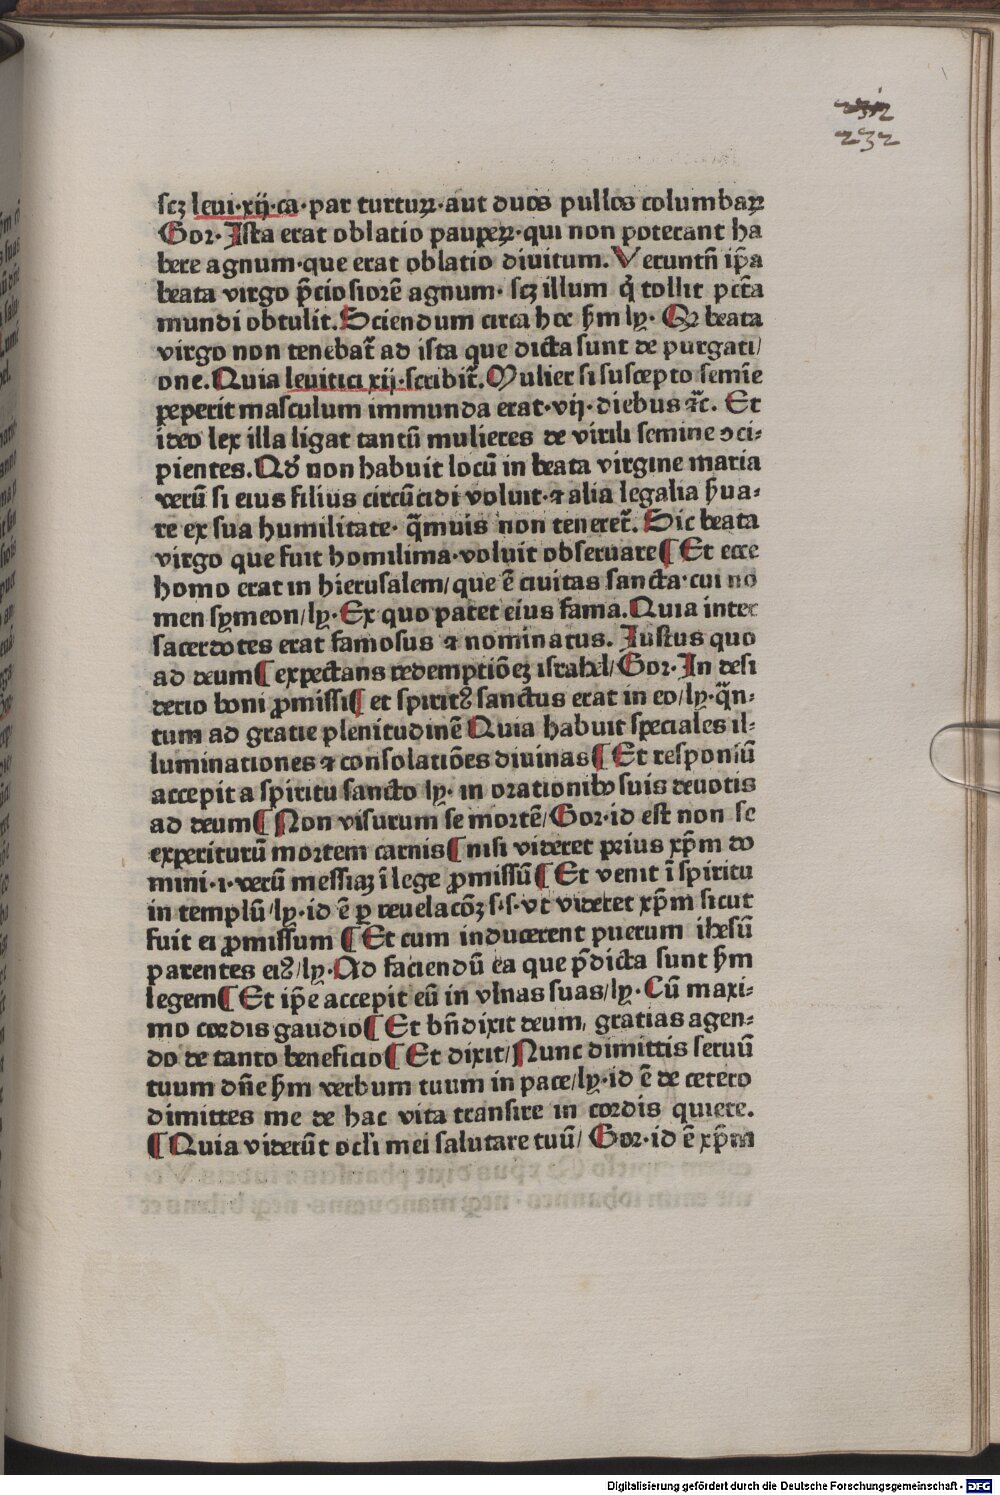 2312
232
scꝫ leui·xij·ca·par turturꝝ·aut duos pullos columbaꝝ
Gor·Ista erat oblatio pauperꝝ·qui non poterant ha
bere agnum·que erat oblatio diuitum. Veruntñ ip̃a
beata virgo p̃ciosiorẽ agnum· scꝫ illum q̃ tollit pctã
mundi obtulit. Sciendum circa hoc ẜm ly· Qꝫ beata
virgo non tenebat̃ ad ista que dicta sunt de purgati/
one. Quia leuitici xij·scribit̃. Mulier si suscepto semie
peperit masculum immunda erat·vij·diebus ⁊c̃. Et
ideo lex illa ligat tantũ mulieres de virili semine ↄci⸗
pientes. Qđ non habuit locũ in beata virgine maria
verũ si eius filius circũcidi voluit·⁊ alia legalia ẜua⸗
re ex sua humilitate· q̃muis non teneret̃. Sic beata
virgo que fuit homilima·voluit obseruare ¶ Et ecce
homo erat in hierusalem/ que ẽ ciuitas sancta·cui no
men symeon/ ly· Ex quo patet eius fama. Quia inter
sacerdotes erat famosus ⁊ nominatus. Iustus quo
ad deum ¶ expectans redemptiõeꝫ israhel/ Gor·In desi
derio boni ꝓmissi ¶ et spiritꝰ sanctus erat in eo/ ly·q̃n⸗
tum ad gratie plenitudinẽ Quia habuit speciales il⸗
luminationes ⁊ consolatiões diuinas ¶ Et responsũ
accepit a spiritu sancto ly· in orationibꝫ suis deuotis
ad deum ¶ Non visurum se mortẽ/ Gor·id est non se
experiturũ mortem carnis ¶ nisi videret prius xp̃m do
mini·i·verũ messiaꝫ ĩ lege ꝓmissũ ¶ Et venit ĩ spiritu
in templũ/ ly·id ẽ ꝑ reuelacõꝫ s·s·vt videret xp̃m sicut
fuit ei ꝓmissum ¶ Et cum inducerent puerum ihesũ
parentes eiꝰ/ ly·Ad faciendũ ea que p̃dicta sunt ẜm
legem ¶ Et ip̃e accepit eũ in vlnas suas/ ly· Cũ maxi⸗
mo cordis gaudio ¶ Et bñdixit deum, gratias agen⸗
do de tanto beneficio ¶ Et dixit/ Nunc dimittis seruũ
tuum dñe ẜm verbum tuum in pace/ ly·id ẽ de cetero
dimittes me de hac vita transire in cordis quiete.
¶ Quia viderũt ocli mei salutare tuũ/ Gor·id ẽ xp̃m
Digitalisierung gefördert durch die Deutsche Forschungsgemeinschaft - DFG